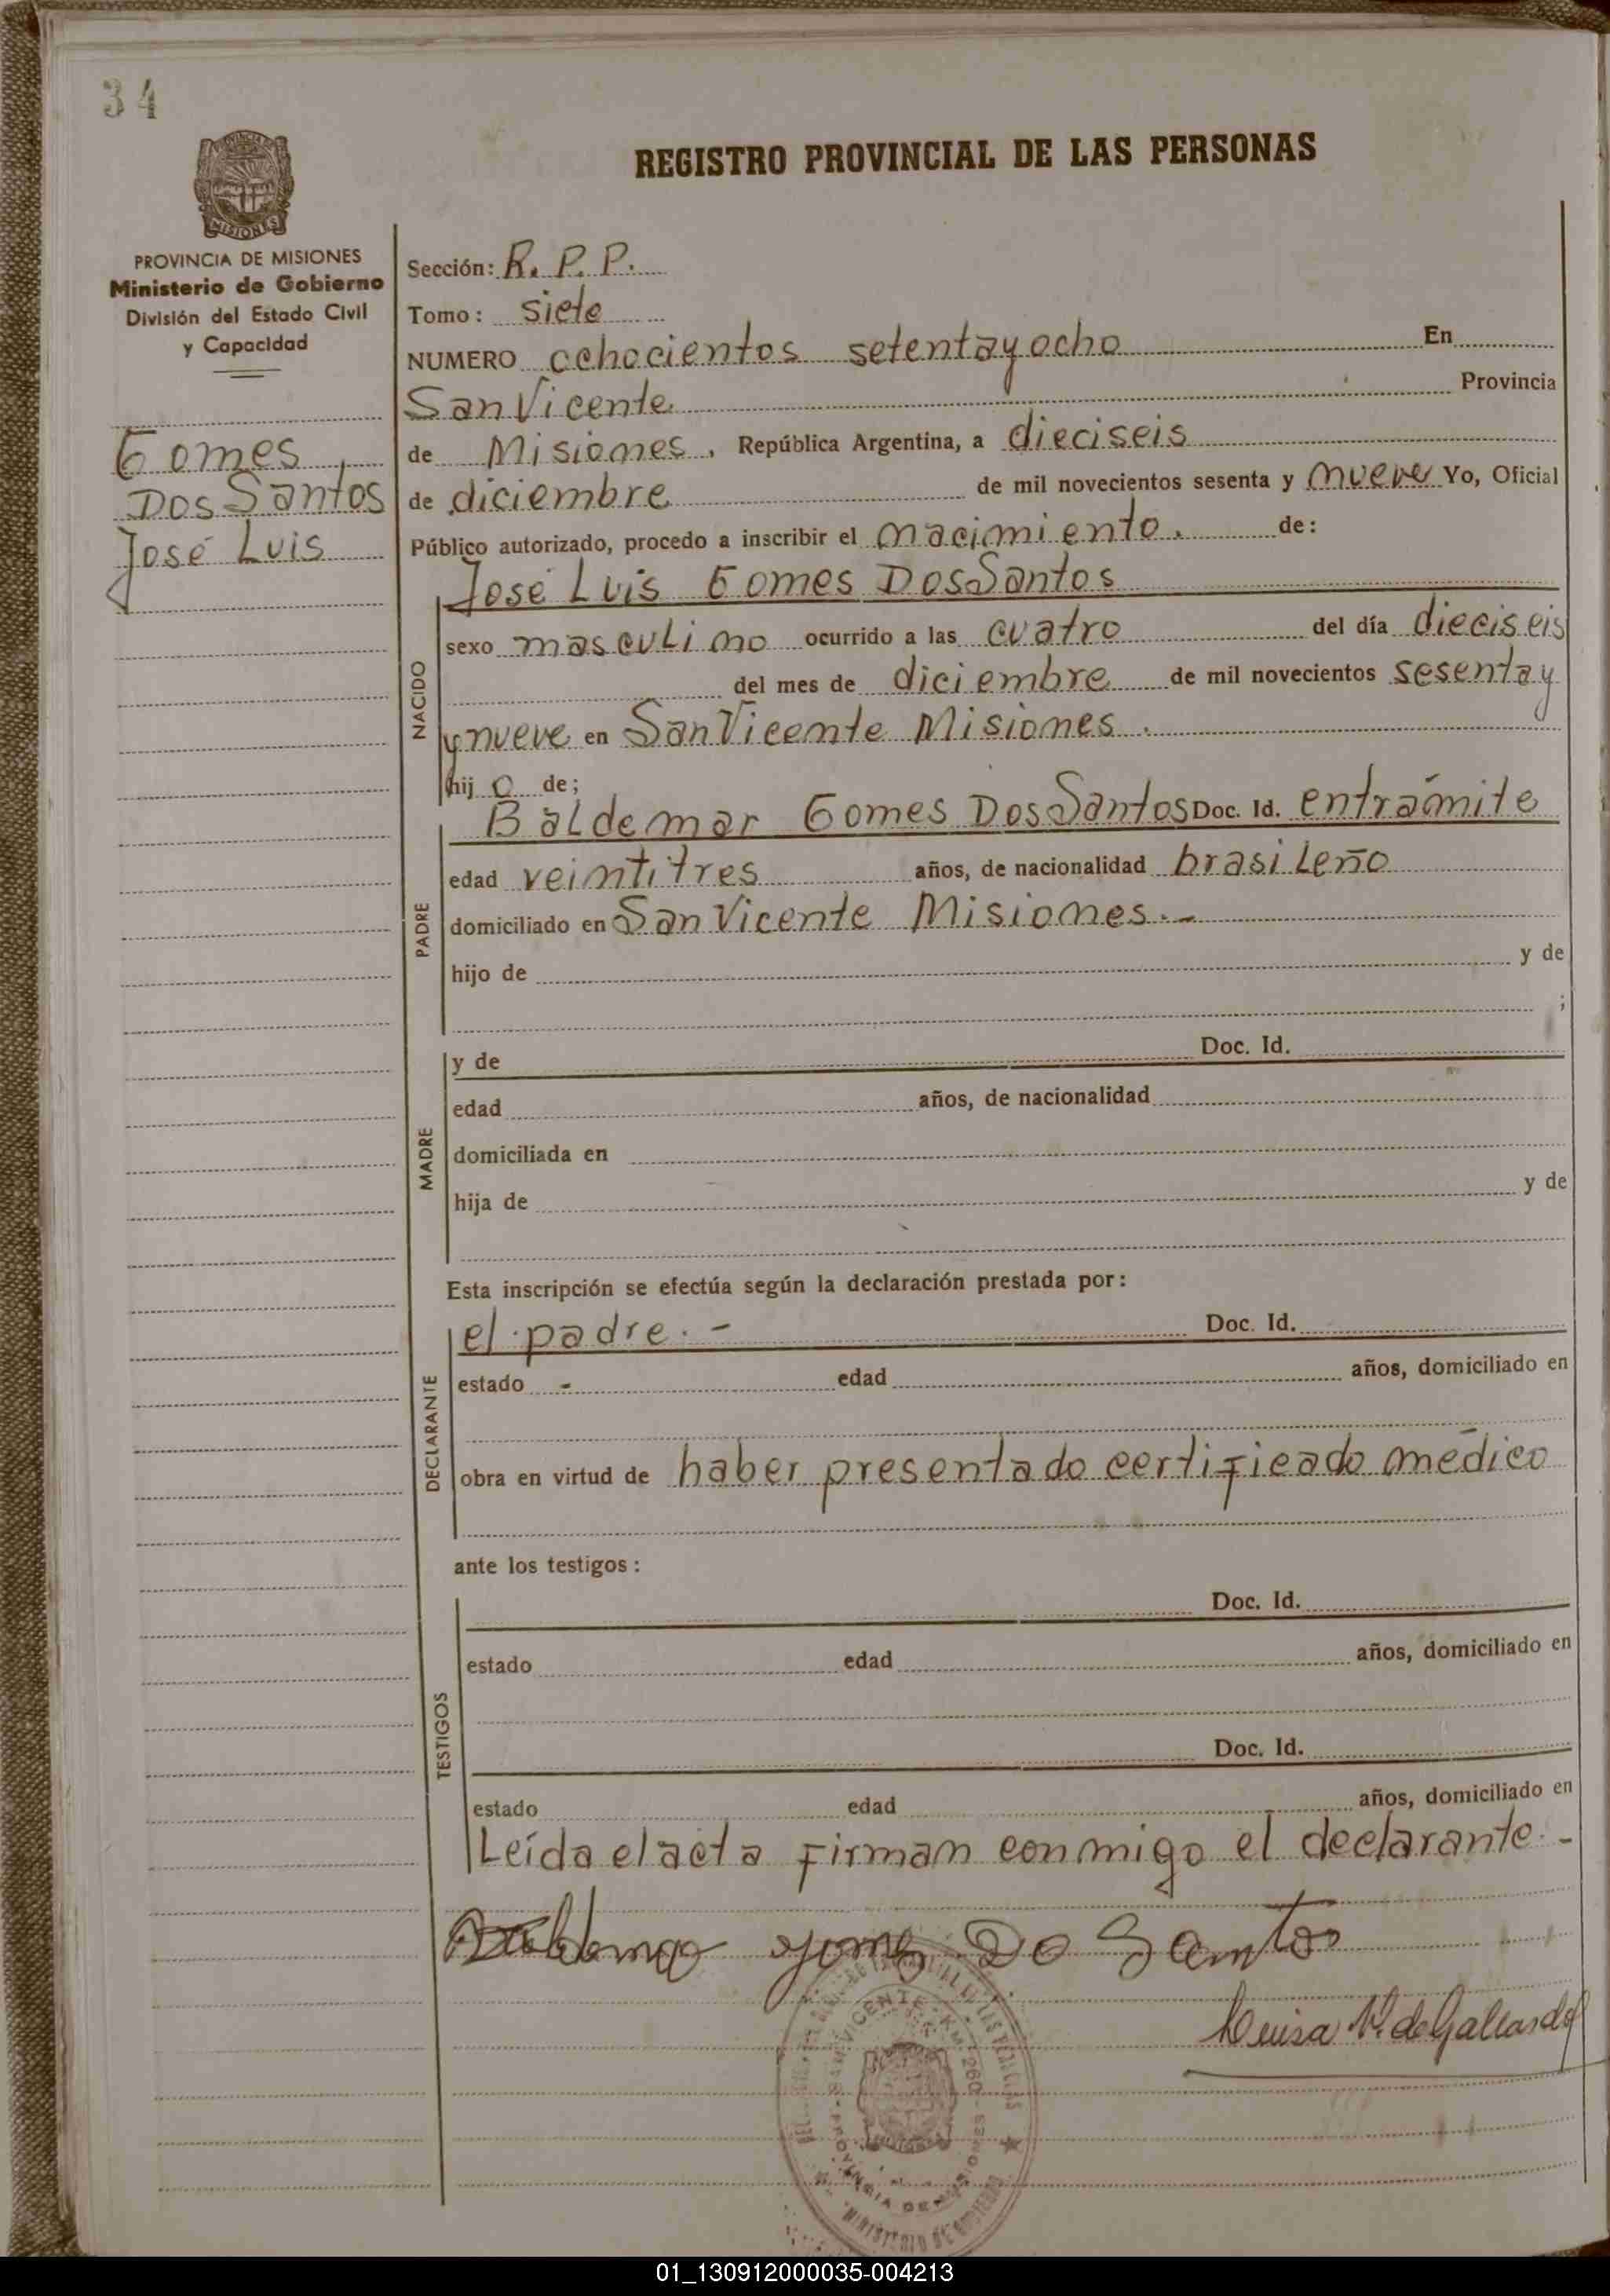 34
PROVINCIA DE MISIONES
Ministerio de Gobierno
División del Estado Civil
y Capacidad
Gomes
Dos Santos
José Luis
REGISTRO PROVINCIAL DE LAS PERSONAS
Sección: R. P. P.
Tomo: siete
NUMERO ochocientos setentayocho En
San Vicente Provincia
de Misiones, República Argentina, a dieciseis
de diciembre de mil novecientos sesenta y nueve Yo, Oficial
Público autorizado, procedo a inscribir el nacimiento. de:
NACIDO
José Luis Gomes Dos Santos
sexo masculino ocurrido a las cuatro del día dieciseis
del mes de diciembre de mil novecientos sesenta y
y nueve en San Vicente Misiones.
hij o de;
PADRE
Baldemar Gomes Dos Santos Doc. Id. en trámite
edad veintitres años, de nacionalidad brasileño
domiciliado en San Vicente Misiones.-
hijo de y de
;
MADRE
y de Doc. Id.
edad años, de nacionalidad
domiciliada en
hija de y de
Esta inscripción se efectúa según la declaración prestada por:
DECLARANTE
el padre.- Doc. Id.
estado - edad años, domiciliado en
obra en virtud de haber presentado certificado médico
ante los testigos:
TESTIGOS
Doc. Id.
estado edad años, domiciliado en
Doc. Id.
estado edad años, domiciliado en
Leída el acta firman conmigo el declarante.-
Do Santos
Luisa V. de Gallardo
SAN VICENTE - KM. 260
PROVINCIA DE MISIONES
MINISTERIO DE GOBIERNO
01_130912000035-004213